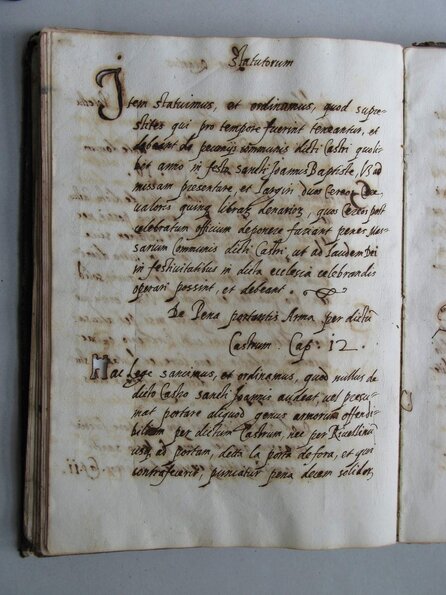 Statutorum
Item statuimus, et ordinamus, quod supre-
stites qui pro tempore fuerint teneantur, et
debeant de pecunijs communis dicti Castri quoli-
bit anno in festo sancti Joannis Baptiste,
missam presentare, et largiri duos Cereos
valoris quinq libraz denarioz, quos Cereos post
celebratum officium deponere faciant penes
sarium communis dicti Castri, ut ad laudem Dei
in festivitatibus in dicta ecclesia celebrandis
operari possint, et debeant.
De Pena portantis Arma per dictu
Castrum. Cap. 12.
Hac Lege sancimus, et ordinamus, quod nullus de
dicto Castro sancti Joannis audeat, vel presu-
mat portare aliquod genus armorum offendi-
bilium per dictum Castrum, nec per Rivellinu
usq ad portam, dicta la porta de fora, et qui
contrafecerit, puniatur pena decem solidor,